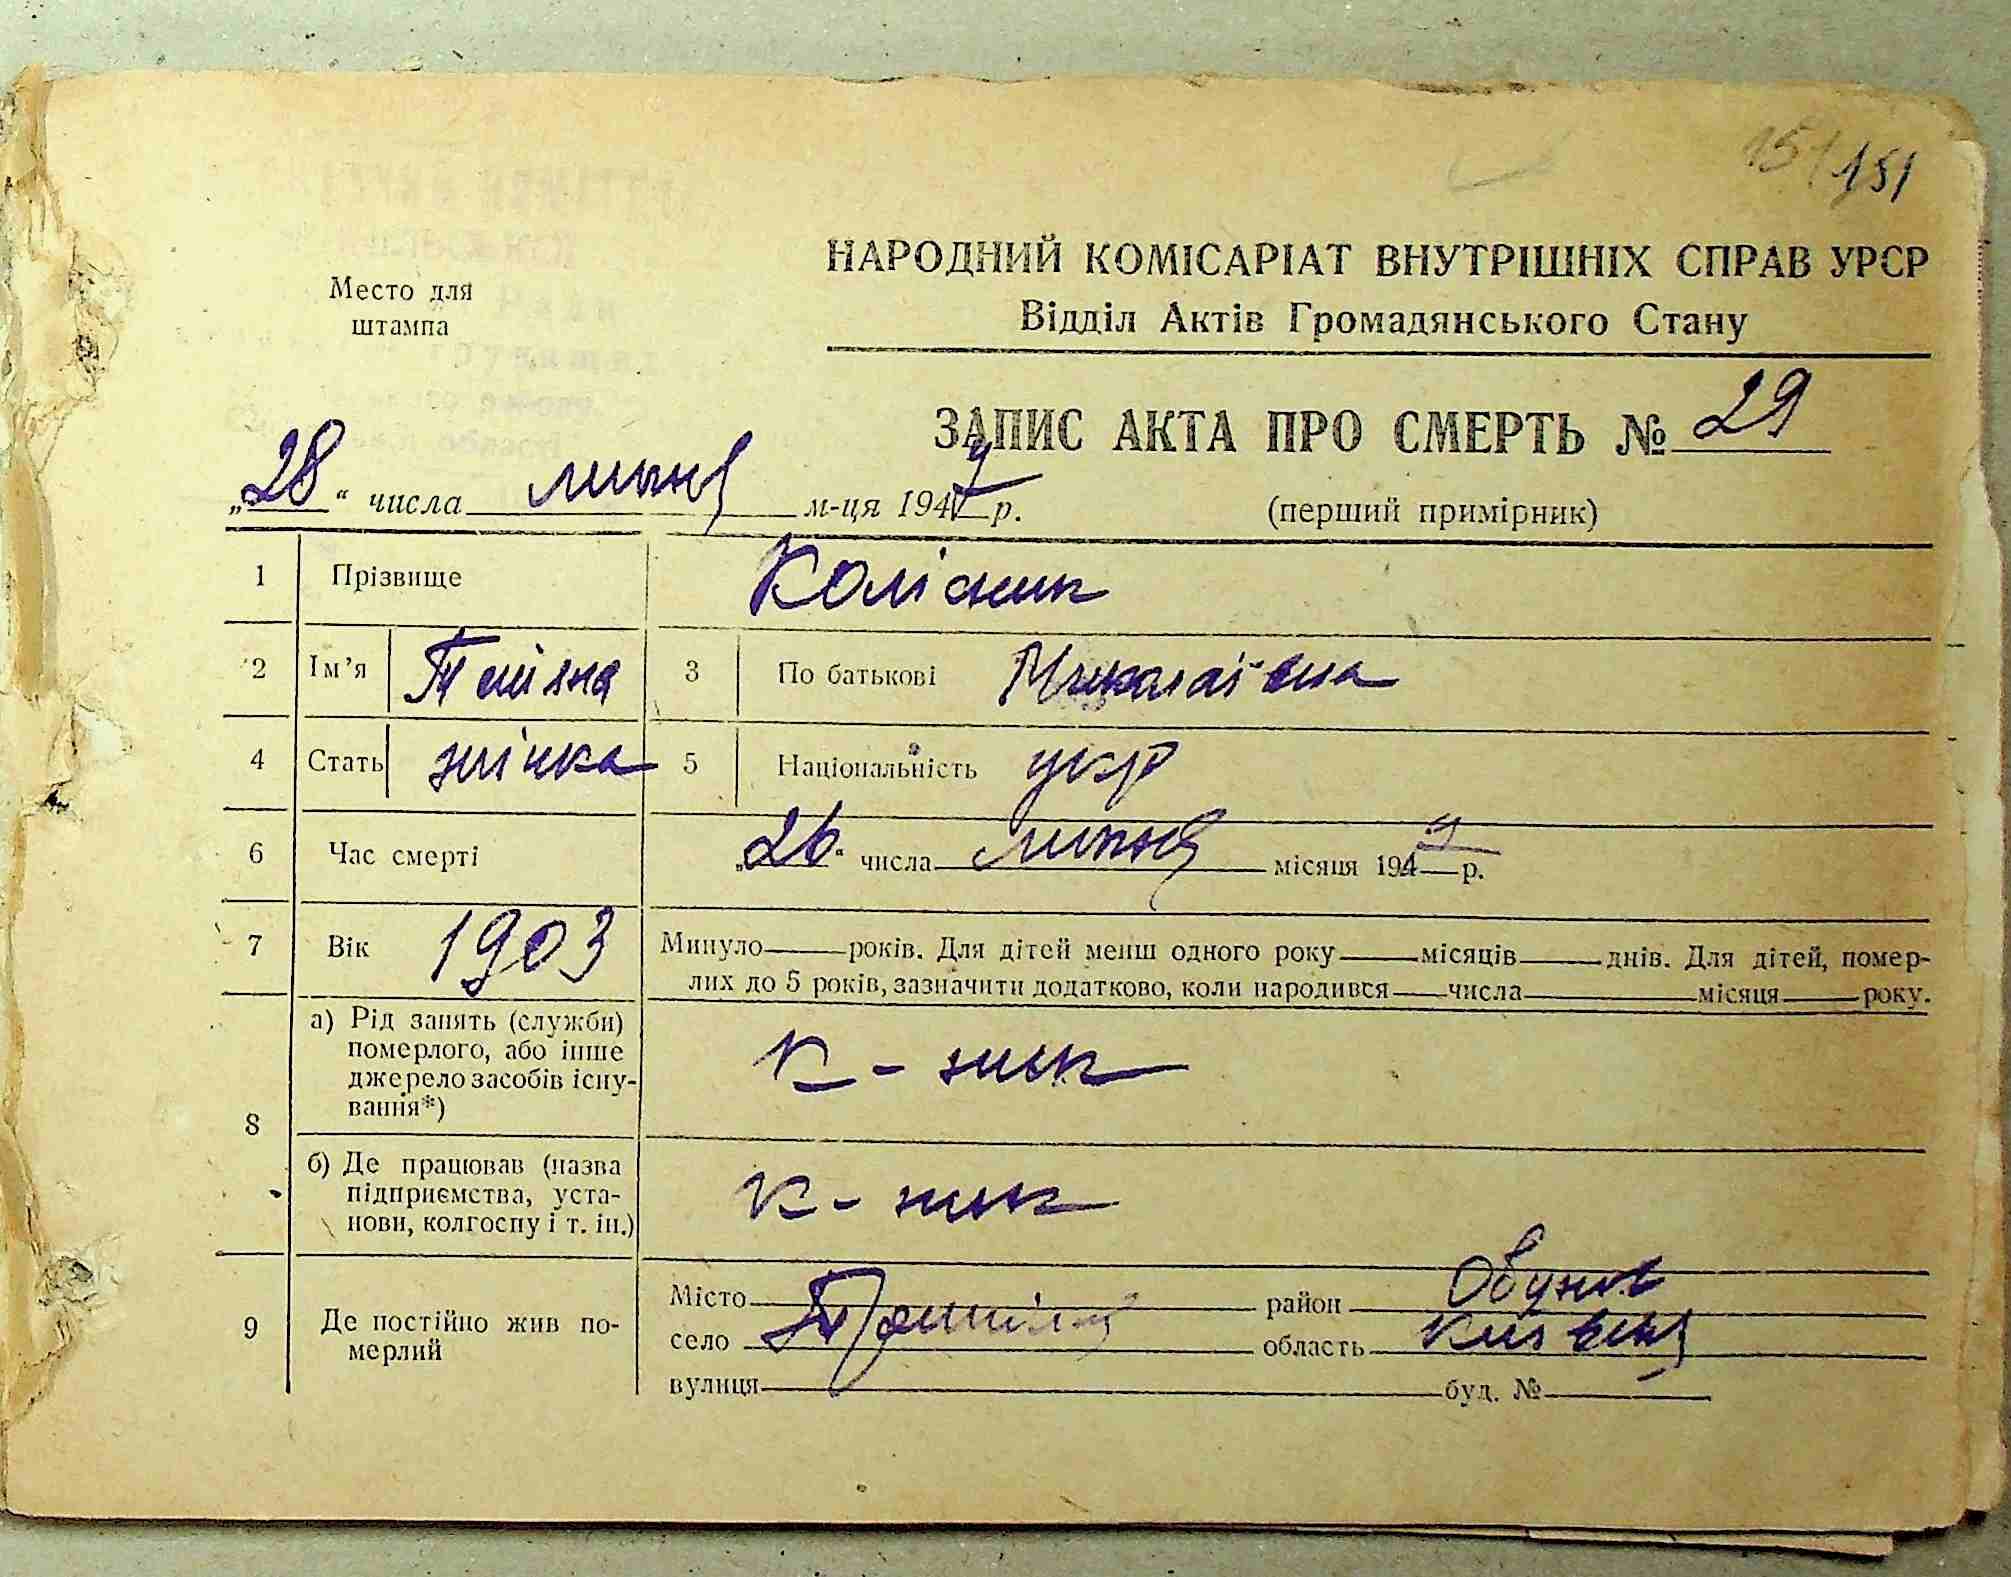 151 151
Место для
штампа
НАРОДНИЙ КОМІСАРІАТ ВНУТРІШНІХ СПРАВ УРСР
Відділ Актів Громадянського Стану
ЗАПИС АКТА ПРО СМЕРТЬ № 29
„28“ числа липня м-ця 194 р.
(перший примірник)
1 Прізвище Колісник
2 Ім’я 3 По батькові Миколаївна
4 Стать жінка 5 Національність укр
6 Час смерті „26“ числа липня місяця 194 р.
7 Вік 1903 Минуло ___ років. Для дітей менш одного року ___ місяців ___ днів. Для дітей, помер-
лих до 5 років, зазначити додатково, коли народився ___ числа ___ місяця ___ року.
8 а) Рід занять (служби)
померлого, або інше
джерело засобів існу-
вання*)
к-ник
б) Де працював (назва
підприємства, уста-
нови, колгоспу і т. ін.)
к-ник
9 Де постійно жив по-
мерлий
Місто ___ район Обухів
село область Київська
вулиця ___ буд. № ___